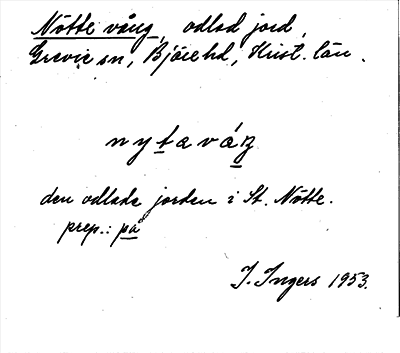 Nötte vång, odlad jord,
Grevie sn, Bjäre hd, Krist. län.
nytaváŋ
den odlade jorden i St. Nötte.
prep.: på
I. Ingers 1953.